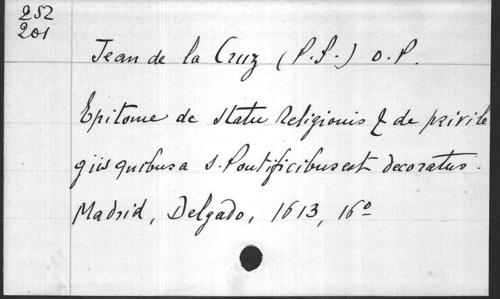 252
201
Jean de la Cruz (P. F.) O.P.
Epitome de statu Religionis & de privile
giis quibus a S. Pontificibus est decoratus.
Madrid, Delgado, 1613, 16º